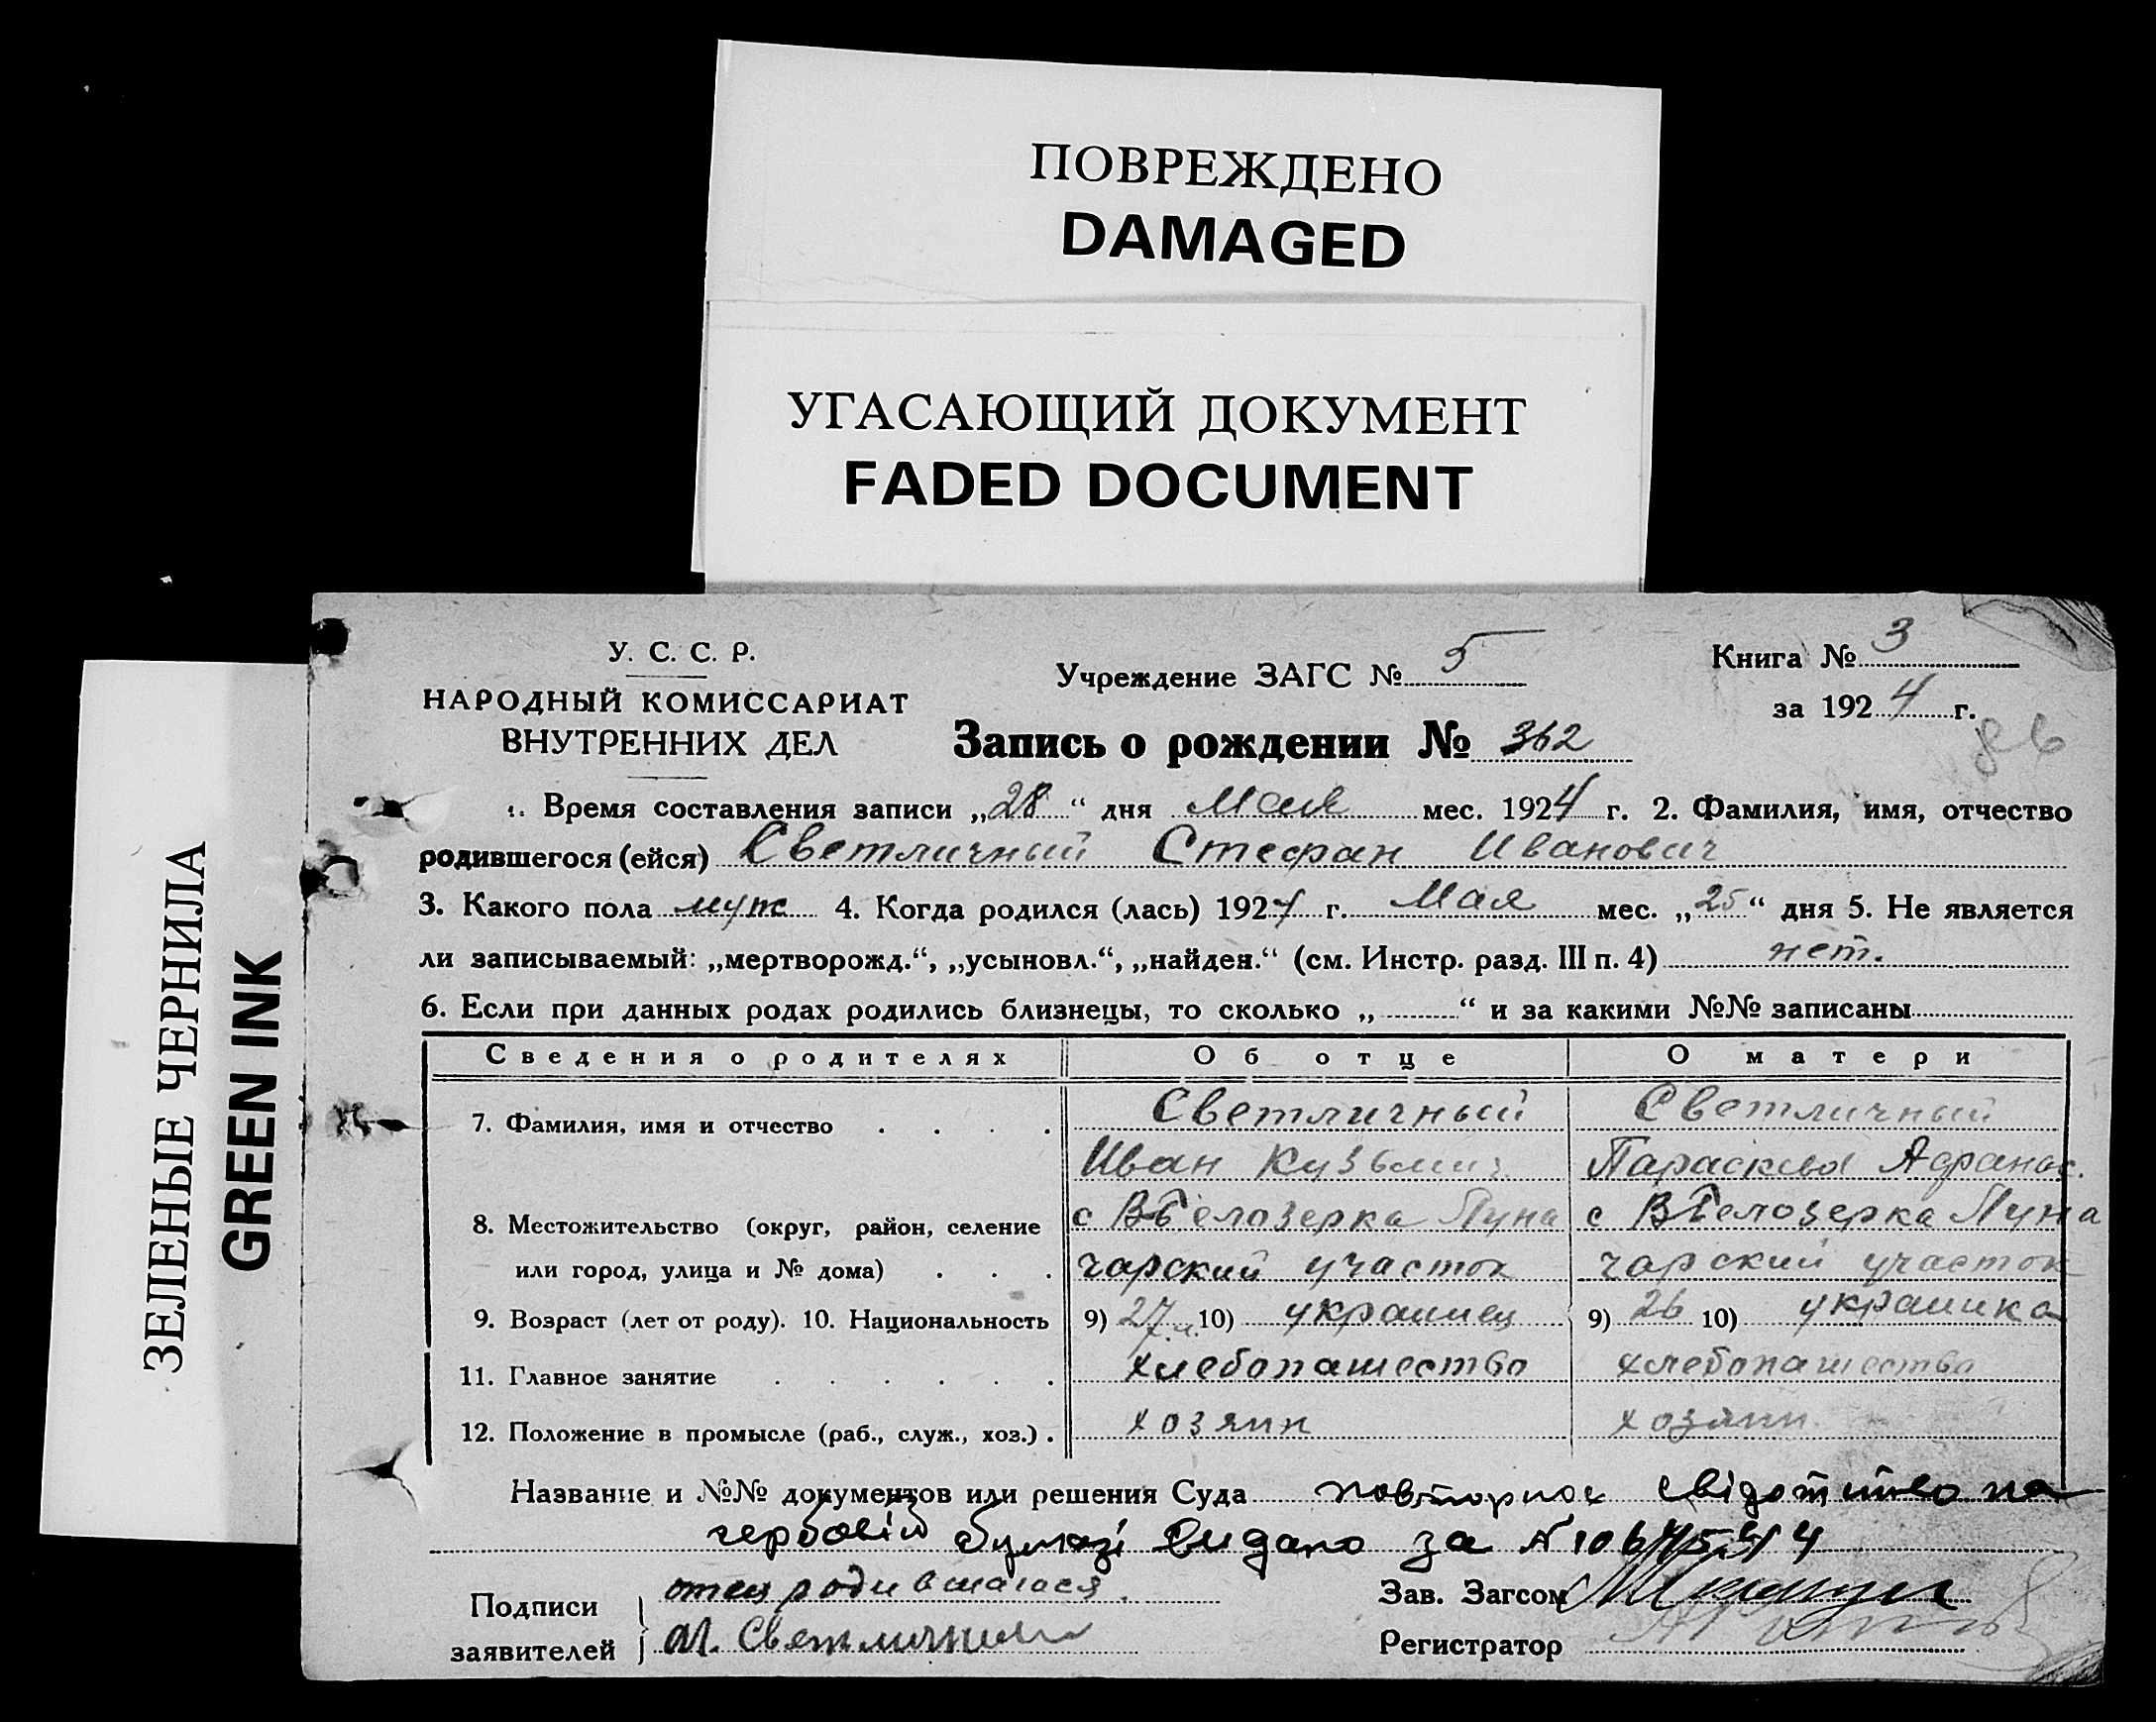 ПОВРЕЖДЕНО
DAMAGED
УГАСАЮЩИЙ ДОКУМЕНТ
FADED DOCUMENT
ЗЕЛЕНЫЕ ЧЕРНИЛА
GREEN INK
У. С. С. Р.
НАРОДНЫЙ КОМИССАРИАТ
ВНУТРЕННИХ ДЕЛ
Учреждение ЗАГС № 5
Книга № 3
за 1924 г.
86
Запись о рождении № 362
1. Время составления записи „28“ дня Мая мес. 1924 г. 2. Фамилия, имя, отчество
родившегося (ейся) Светличный Стефан Иванович
3. Какого пола муж 4. Когда родился (лась) 1924 г. Мая мес. „25“ дня 5. Не является
ли записываемый: „мертворожд.“, „усыновл.“, „найден.“ (см. Инстр. разд. III п. 4) нет.
6. Если при данных родах родились близнецы, то сколько „ “ и за какими №№ записаны
Сведения о родителях Об отце О матери
7. Фамилия, имя и отчество Светличный Светличный
Иван Кузьмич Параскева Афанас.
8. Местожительство (округ, район, селение с Белозерка Луна с Белозерка Луна
или город, улица и № дома) чарский участок чарский участок
9. Возраст (лет от роду). 10. Национальность 9) 27 л. 10) украинец 9) 26 10) украинка
11. Главное занятие хлебопашество хлебопашество
12. Положение в промысле (раб., служ., хоз.) хозяин хозяин
Название и №№ документов или решения Суда повторное свідотство на
гербовій бумазі видано за №
Подписи отец родившагося.
заявителей Светличный
Зав. Загсом
Регистратор